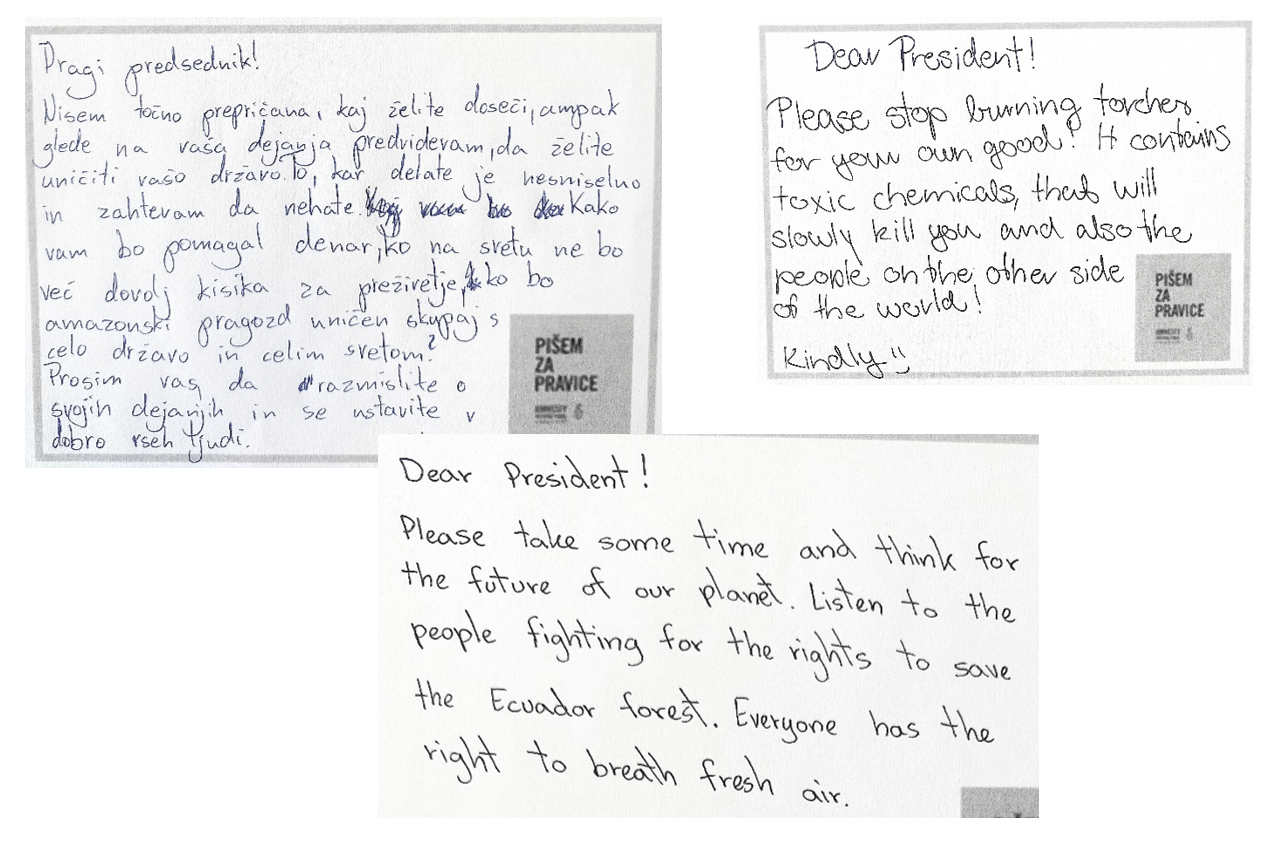 Dragi predsednik!
Nisem točno prepričana, kaj želite doseči, ampak
glede na vaša dejanja predvidevam, da želite
uničiti vašo državo. To, kar delate je nesmiselno
in zahtevam da nehate. Kako
vam bo pomagal denar, ko na svetu ne bo
več dovolj kisika za preživetje, ko bo
amazonski pragozd uničen skupaj s
celo državo in celim svetom?
Prosim vas, da razmislite o
svojih dejanjih in se ustavite v
dobro vseh ljudi.
PIŠEM
ZA
PRAVICE
Dear President!
Please stop burning torches
for your own good! It contains
toxic chemicals, that will
slowly kill you and also the
people on the other side
of the world!
Kindly
PIŠEM
ZA
PRAVICE
Dear President!
Please take some time and think for
the future of our planet. Listen to the
people fighting for the rights to save
the Ecuador forest. Everyone has the
right to breath fresh air.